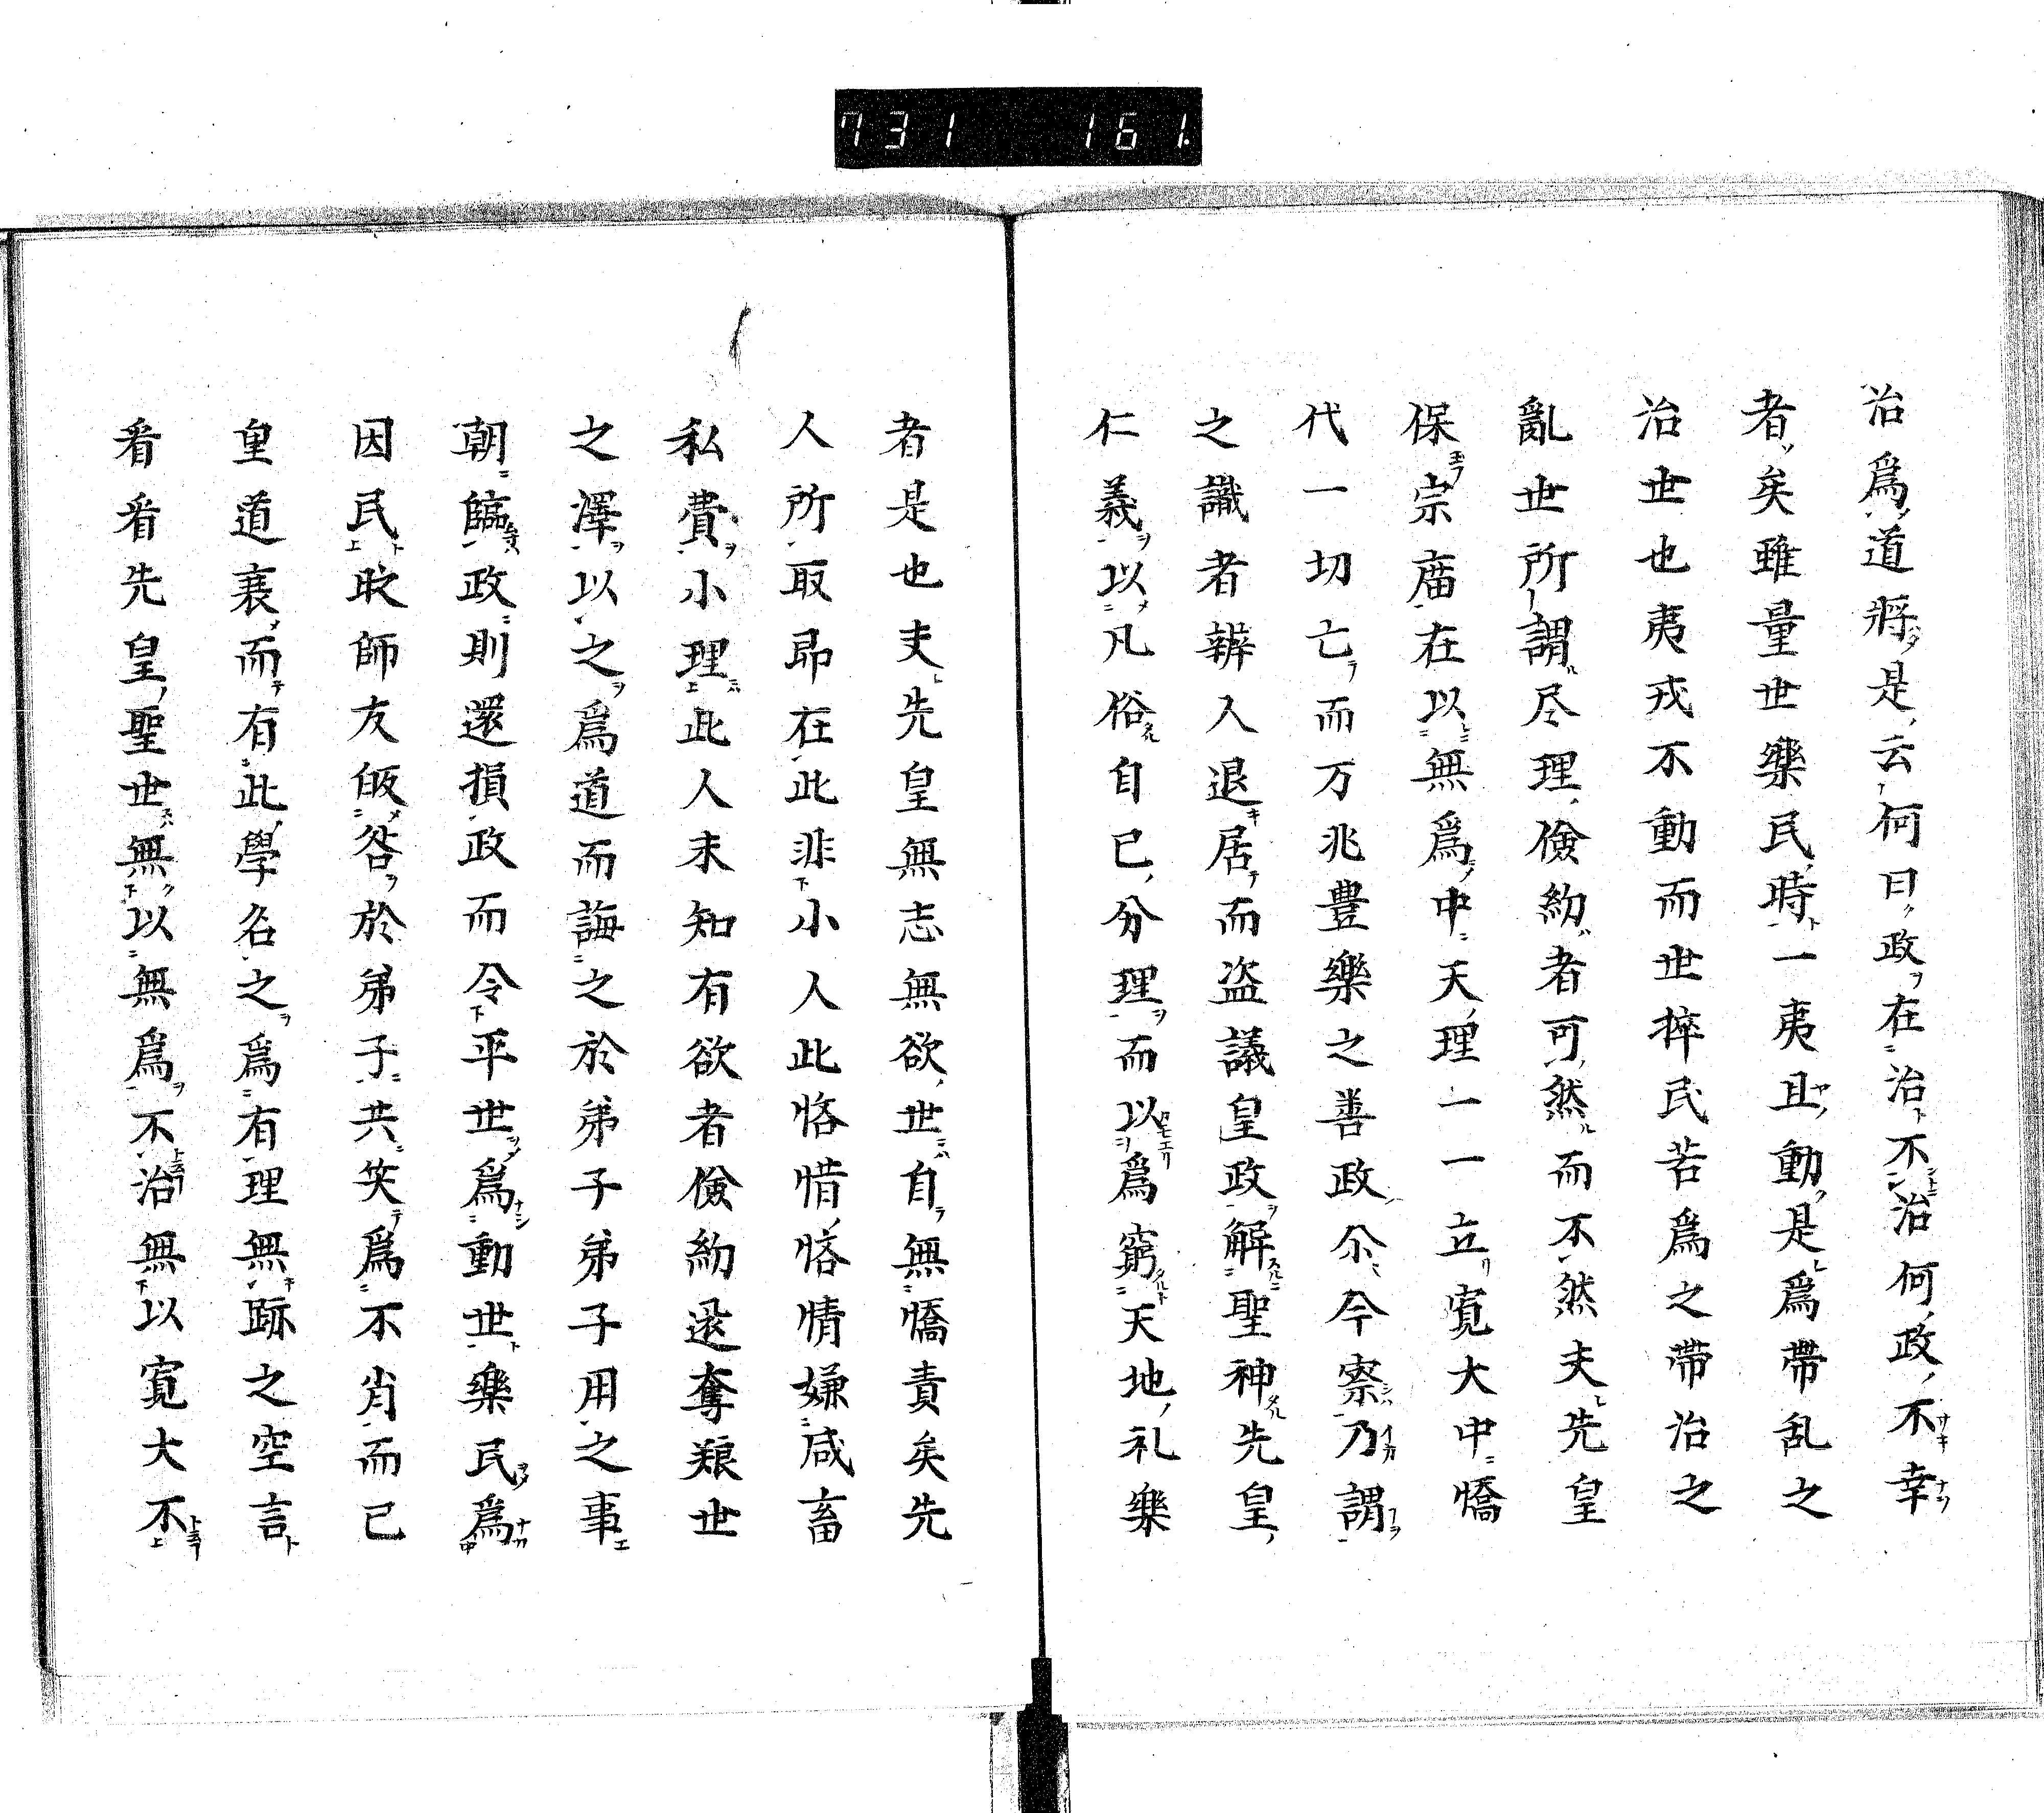 731 161.
治爲道將是云何曰政在治不治何政不幸
者矣雖量世樂民時一夷且動是爲帶乱之
治世也夷戎不動而世捽民苦爲之帶治之
亂世所謂尽理儉約者可然而不然夫先皇
保宗庿在以無爲中天理一一立寛大中憍
代一切亡而万兆豊樂之善政尒今察乃謂
之識者辨人退居而盗議皇政解聖神先皇
仁義以凡俗自已分理而以爲窮天地礼樂
者是也夫先皇無志無欲世自無憍責矣先
人所取昂在此非小人此恪惜恪情嫌咸畜
私費小理此人未知有欲者儉約逃奪艱世
之澤以之爲道而誨之於弟子弟子用之事
朝臨政則還損政而令平世爲動世樂民爲
因民取師友皈咎於弟子共笑爲不肖而已
皇道衰而有此學名之爲有理無跡之空言
看看先皇聖世無以無爲不治無以寛大不